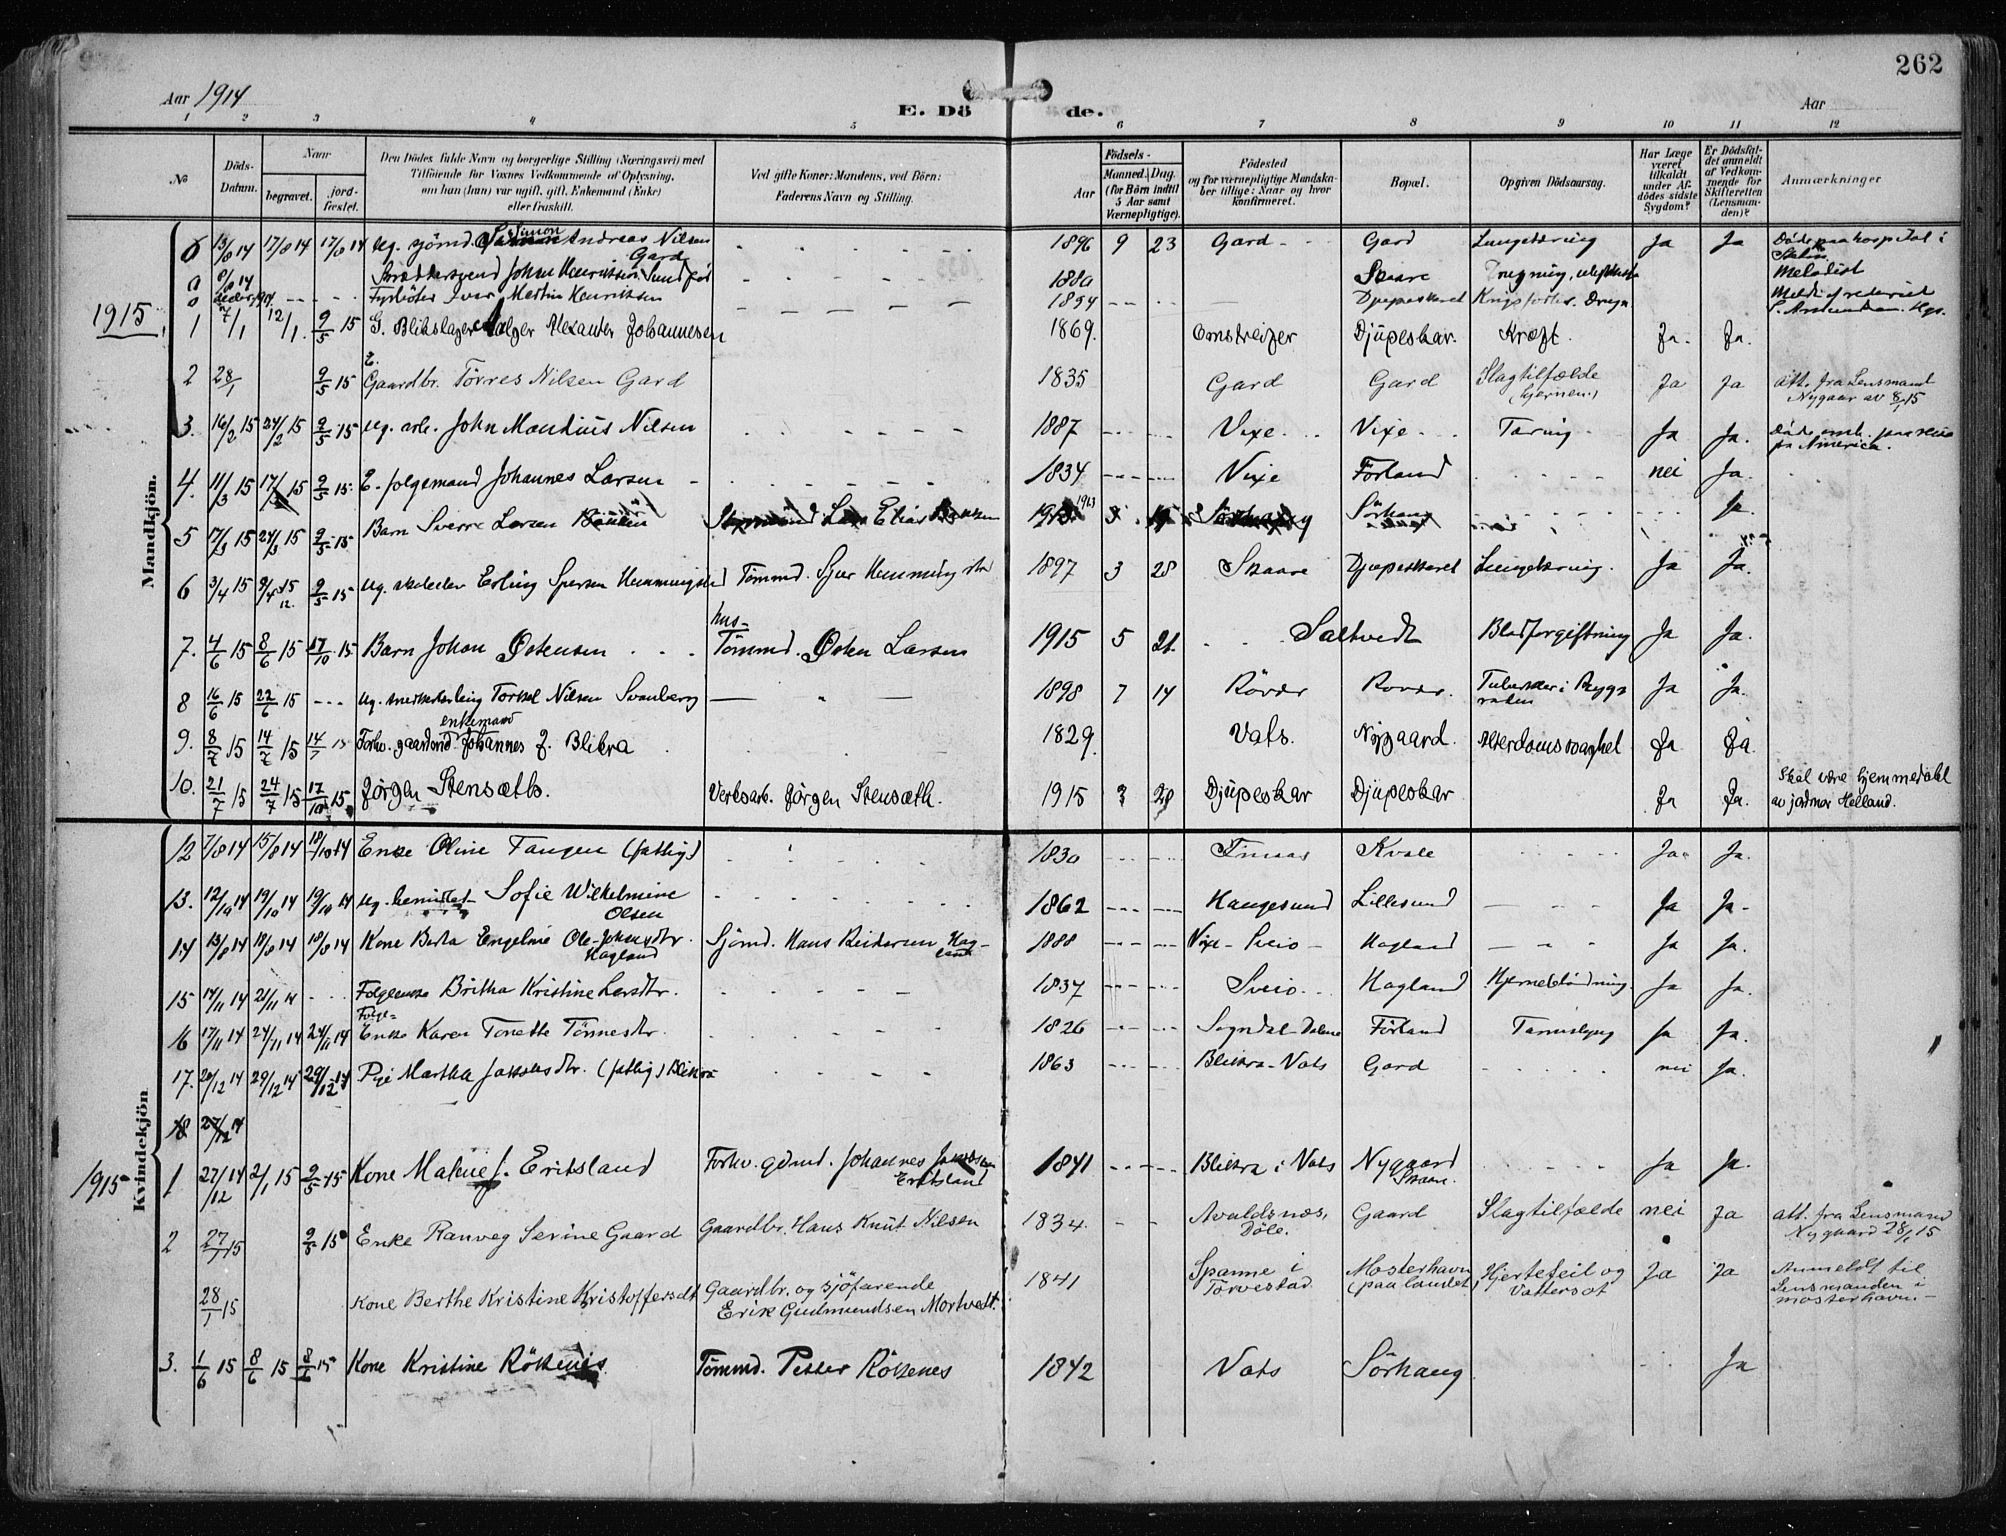 262
Aar 1914
E. Dö de.
Aar
1 2 3 4 5 6 7 8 9 10 11 12
No
Döds-Datum.
Naar
begravet.
jord-fæstet.
Den Dödes fulde Navn og borgerlige Stilling (Næringsvei) med
Tilföiende for Voxnes Vedkommende af Oplysning,
om han (hun) var ugift, gift, Enkemand (Enke)
eller fraskilt.
Ved gifte Koner: Mandens, ved Börn:
Faderens Navn og Stilling.
Aar
Födsels-
Maaned. Dag.
(for Börn indtil
5 Aar samt
Værnepligtige).
Födested
og for værnepligtige Mandska-
ber tillige: Naar og hvor
konfirmeret.
Bopæl.
Opgiven Dödsaarsag.
Har Læge
været
tilkaldt
under Af-
dödes sidste
Sygdom?
Er Dödsfal-
det anmeldt
af Vedkom-
mende for
Skifteretten
(Lensman-
den)?
Anmærkninger
Mandkjön.
6 13/8 14 17/8 14 17/8 14 ug. sjömd. Simon Andreas Nilsen Gard 1896 9 23 Gard Gard Lungetæring Ja Ja Döde paa hospital i
8/8 14 Skræddersvend Johan Henriksen Sundför 1880 Skaare
Fyrböter Ivar Martin Henriksen 1894 Djupeskaret
1915
1 7/1 12/1. 9/5 15 G. Blikslager Holger Alexander Johannesen 1869. Omstreifer Djupeskar. Kræft. Ja. Ja.
2 28/1 9/5 15 E. Gaardbr. Törres Nilsen Gard 1835 Gard Gard Slagtilfælde (hjernen.) Ja Ja att. fra Lensmand Nygaar av 8/1 15
3. 16/2 15 24/2 15 9/5 15 ug. arb. John Mandius Nilsen 1887 Vixe Vixe Tæring Ja Ja. Döde omb. paa reise fra America.
4. 11/3 15 17/3 15 9/5 15. E. folgemand Johannes Larsen 1834 Vixe Förland nei Ja.
5 17/3 15 24/3 15 9/5 15 Barn Sverre Larsen 1913 Sörhaug Ja.
6 3/4 15 9/4 15 9/5 15 ug. Erling Hemmingstad Tömmd. Sjur Hemmingstad 1897 3 28 Skaare Djupeskaret Lungetæring. Ja Ja.
7. 4/6 15 8/6 15 17/10 15. Barn Johan Östensen hus-Tömmd. Östen Larsen 1915 5 21. Saltvedt Blodforgiftning Ja Ja.
8 16/6 15 22/6 15 ug. Torkel Nilsen Svanberg 1898 7 14 Rövær Rovær. Tuberkler i Rygraden Ja Ja.
9. 8/7 15 14/7 15 14/7 15 Forhv. gaardmd. enkemand Johannes J. Blikra 1829. Vats. Nygaard. Alderdomssvaghet Ja Ja.
10. 21/7 15 24/7 15 17/10 15 Jörgen Stensæth. Verksarb. Jörgen Stensæth. 1915 3 28 Djupeskar Djupeskar Ja Ja. Skal være hjemmedöbt av jordmor Helland.
Kvindekjön
12 7/8 14 15/8 14 18/10 14 Enke Oline Tangen (fattig) 1830 Kvale Ja. Ja.
13. 12/10 14 19/10 14 19/10 14 ug. Sofie Wilhelmine Olsen 1862 Haugesund Lillesund Ja Ja.
14 13/8 14 18/8 14 18/8 14 Kone Berta Engeline Ole-Johansdtr. Hagland Sjömd. Hans Reidarsen Hagland 1888 Vixe - Sveio Hagland Ja Ja.
15 14/11 14 21/11 14 Folgeenke Britha Kristine Larsdtr. 1837 Sveio Hagland Hjerneblödning Ja Ja.
16 17/11 14 24/11 14 24/11 14 Folge-Enke Karen Tonette Tönnesdtr. 1826 Sogndal-Dalene Förland Ja Ja.
17. 20/12 14 29/12 14 29/12 14 Pige Martha Jakobsdtr. (fattig) Blikra 1863 Blikra-Vats Gard nei Ja.
18 27/12 14
1915
1 27/12 14 2/1 15 9/5 15 Kone Malene J. Eritsland Forhv. gdmd. Johannes Jakobsen Eritsland 1841 Blikra i Vats Nygaard Skaare. Ja Ja.
2 27/1 15 9/5 15 Enke Ranveg Serine Gaard Gaardbr. Hans Knut Nilsen 1834. Avaldsnes, Döle. Gaard Slagtilfælde nei Ja att. fra Lensmand Nygaard 28/1 15
28/1 15 Kone Berthe Kristine Kristoffersdt Gaardbr. og sjöfarende Erik Gudmundsen Mortvedt. 1841 Spanne i Torvestad Mosterhavn (paa landet) Hjertefeil og Vattersot Ja Ja Anmeldt til Lensmanden i mosterhavn.-
3. 1/6 15 8/6 15 8/6 15 Kone Kristine Rökenes Tömmd. Petter Rökenes 1842 Vats Sörhaug Ja